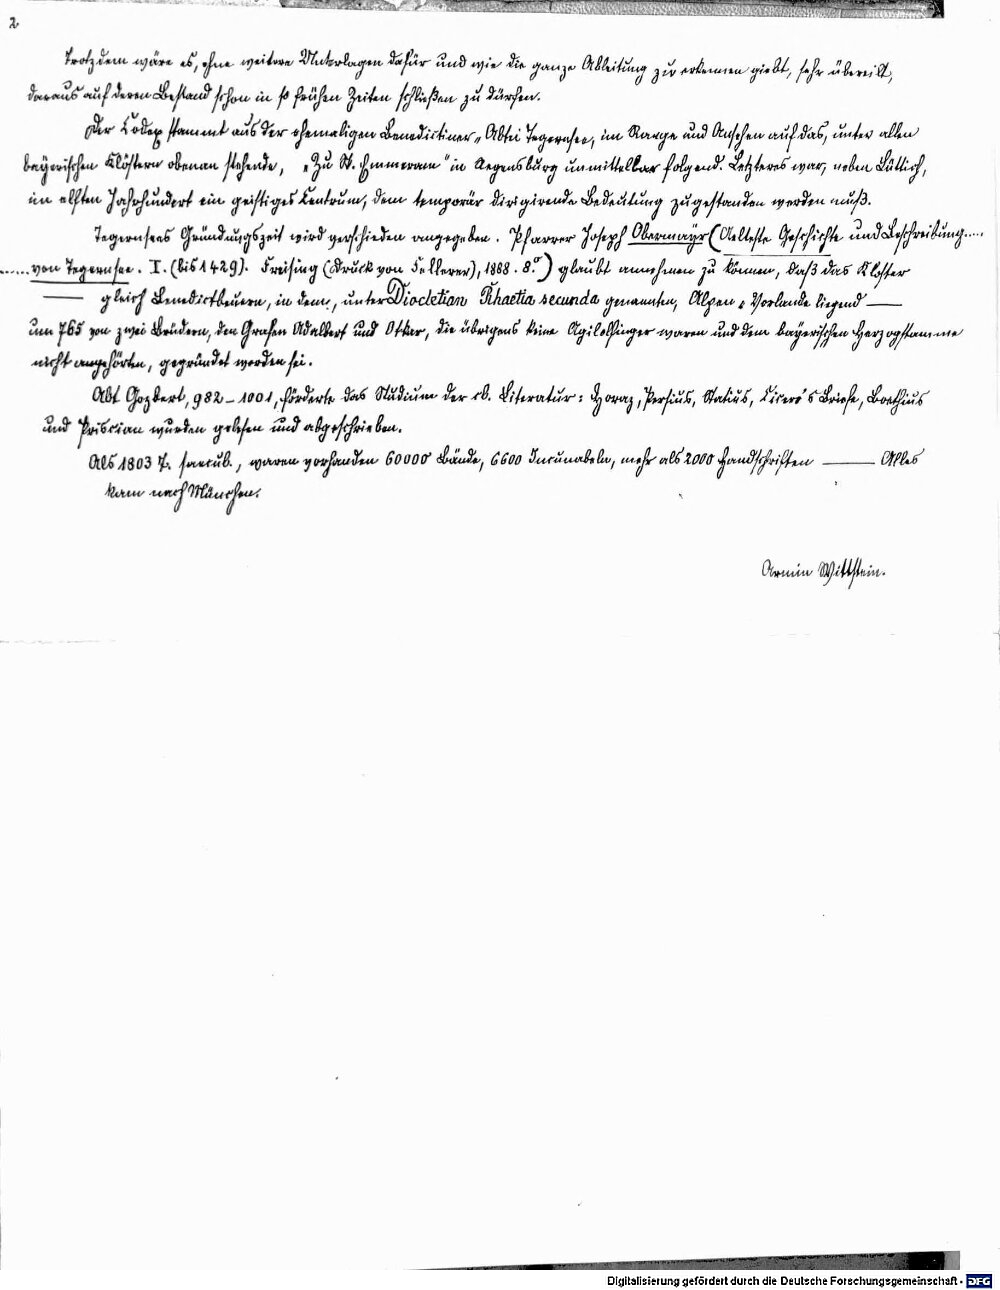 2
Trotzdem wäre es, ohne weitere Unterlagen dafür und wie die ganze Ableitung zu erkennen giebt, sehr übereilt,
daraus auf deren Bestand schon in so frühen Zeiten schließen zu dürfen.
Der Codex stammt aus der ehemaligen Benedictiner-Abtei Tegernsee, im Range und Ansehen auf das, unter allen
bayerischen Klöstern obenan stehende, „Zu St. Emmeram" in Regensburg unmittelbar folgend. Letzteres war, neben Lüttich,
im elften Jahrhundert ein geistiges Centrum, dem temporär dirigirende Bedeutung zugestanden werden muß.
Tegernsees Gründungszeit wird verschieden angegeben. Pfarrer Joseph Obermayr (Aelteste Geschichte und Beschreibung.....
......von Tegernsee. I. (bis 1429). Freising (Druck von Fellerer), 1888. 8.º) glaubt annehmen zu können, daß das Kloster
—— gleich Benedictbeuern, in dem, unter Diocletian Rhaetia secunda genannten, Alpen-Vorlande liegend ——
um 765 von zwei Brüdern, den Grafen Adalbert und Otkar, die übrigens keine Agilolfinger waren und dem bayerischen Herzogstamme
nicht angehörten, gegründet worden sei.
Abt Gozbert, 982–1001, förderte das Studium der Literatur: Horaz, Persius, Statius, Cicero's Briefe, Boethius
und Priscian wurden gelesen und abgeschrieben.
Als 1803 T. saecul., waren vorhanden 60000 Bände, 6600 Incunabeln, mehr als 2000 Handschriften —— Alles
kam nach München.
Armin Wittstein.
Digitalisierung gefördert durch die Deutsche Forschungsgemeinschaft - DFG